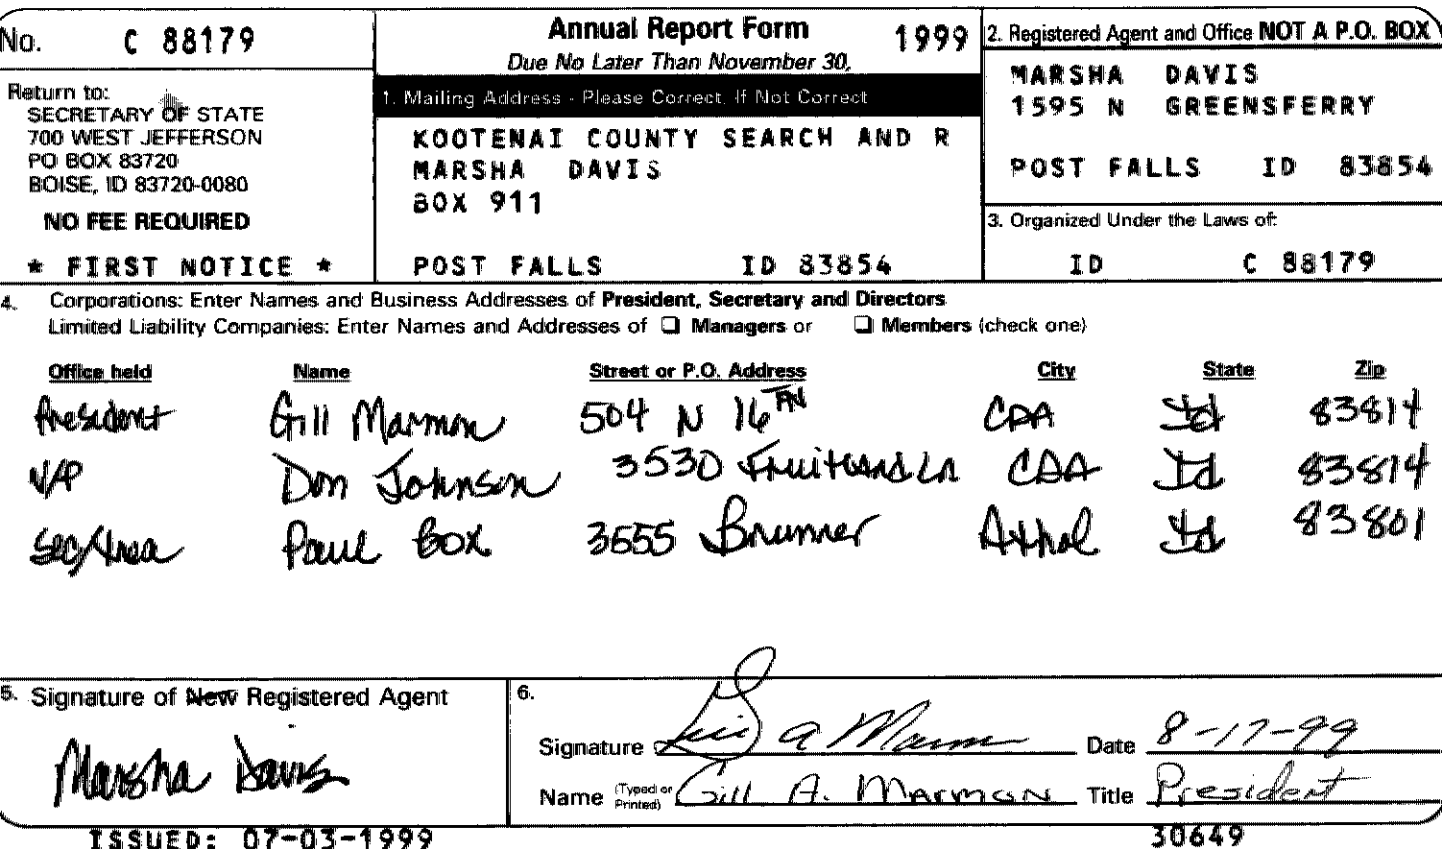 No. C 88179
Return to:
SECRETARY OF STATE
700 WEST JEFFERSON
PO BOX 83720
BOISE, ID 83720-0080
NO FEE REQUIRED
* FIRST NOTICE *
Annual Report Form 1999
Due No Later Than November 30,
1. Mailing Address - Please Correct, If Not Correct
KOOTENAI COUNTY SEARCH AND R
MARSHA DAVIS
BOX 911
POST FALLS ID 83854
2. Registered Agent and Office NOT A P.O. BOX
MARSHA DAVIS
1595 N GREENSFERRY
POST FALLS ID 83854
3. Organized Under the Laws of:
ID C 88179
4. Corporations: Enter Names and Business Addresses of President, Secretary and Directors
Limited Liability Companies: Enter Names and Addresses of ☐ Managers or ☐ Members (check one)
Office held Name Street or P.O. Address City State Zip
President Gill Marmon 504 N 16TH CDA Id 83814
V/P Don Johnson 3530 Fruitland Ln CDA Id 83814
Sec/Trea Paul Box 3655 Brunner Athol Id 83801
5. Signature of New Registered Agent
Marsha Davis
6.
Signature Gill A Marmon Date 8-17-99
Name (Typed or Printed) Gill A. Marmon Title President
ISSUED: 07-03-1999 30649